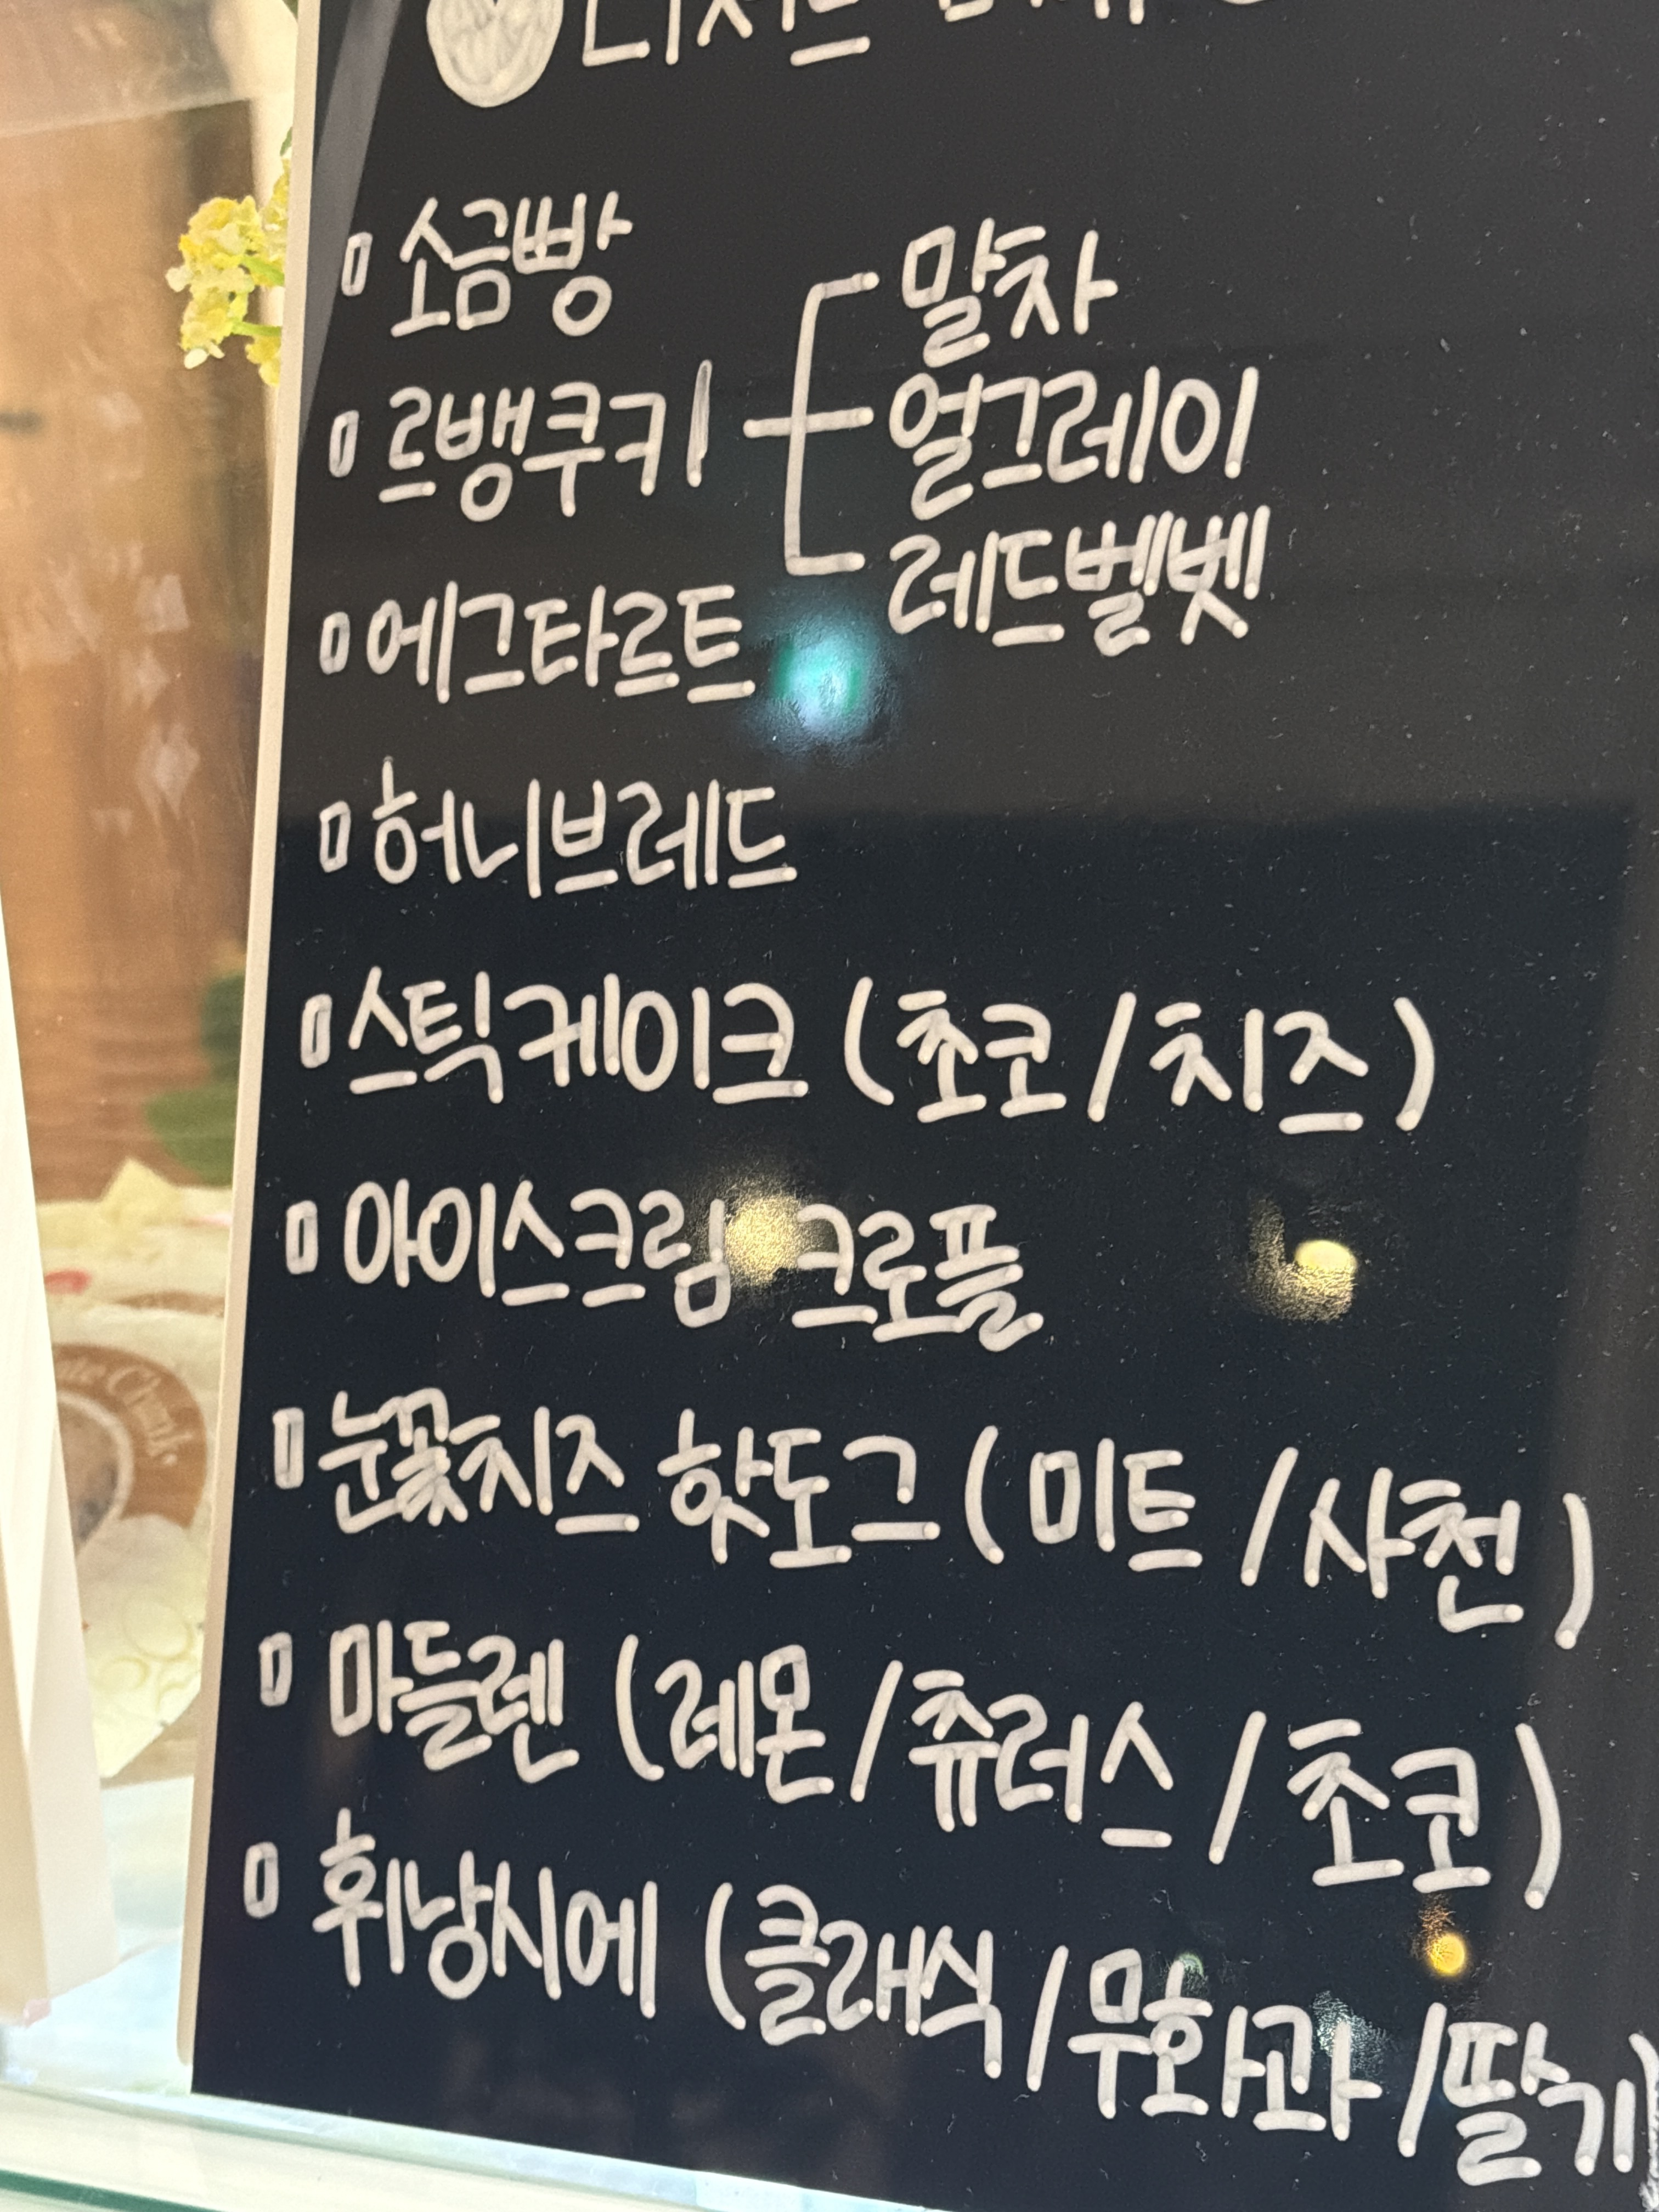 소금빵
말차
르뱅쿠키
얼그레이
레드벨벳
에그타르트
허니브레드
스틱케이크 (초코/치즈)
아이스크림 크로플
눈꽃치즈 핫도그 (미트/사천)
마들렌 (레몬/츄러스/초코)
휘낭시에 (클래식/무화과/딸기)